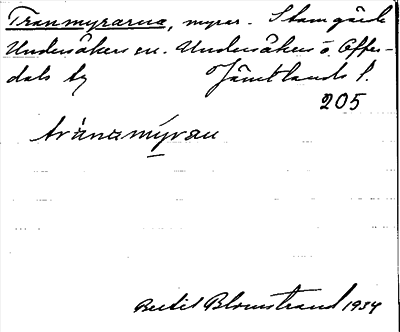 Tranmyrarna, myrar. Stamgärde
Undersåkers sn. Undersåkers o. Offer-
dals tg Jämtlands l.
205
tránamýran
Bertil Blomstrand 1934